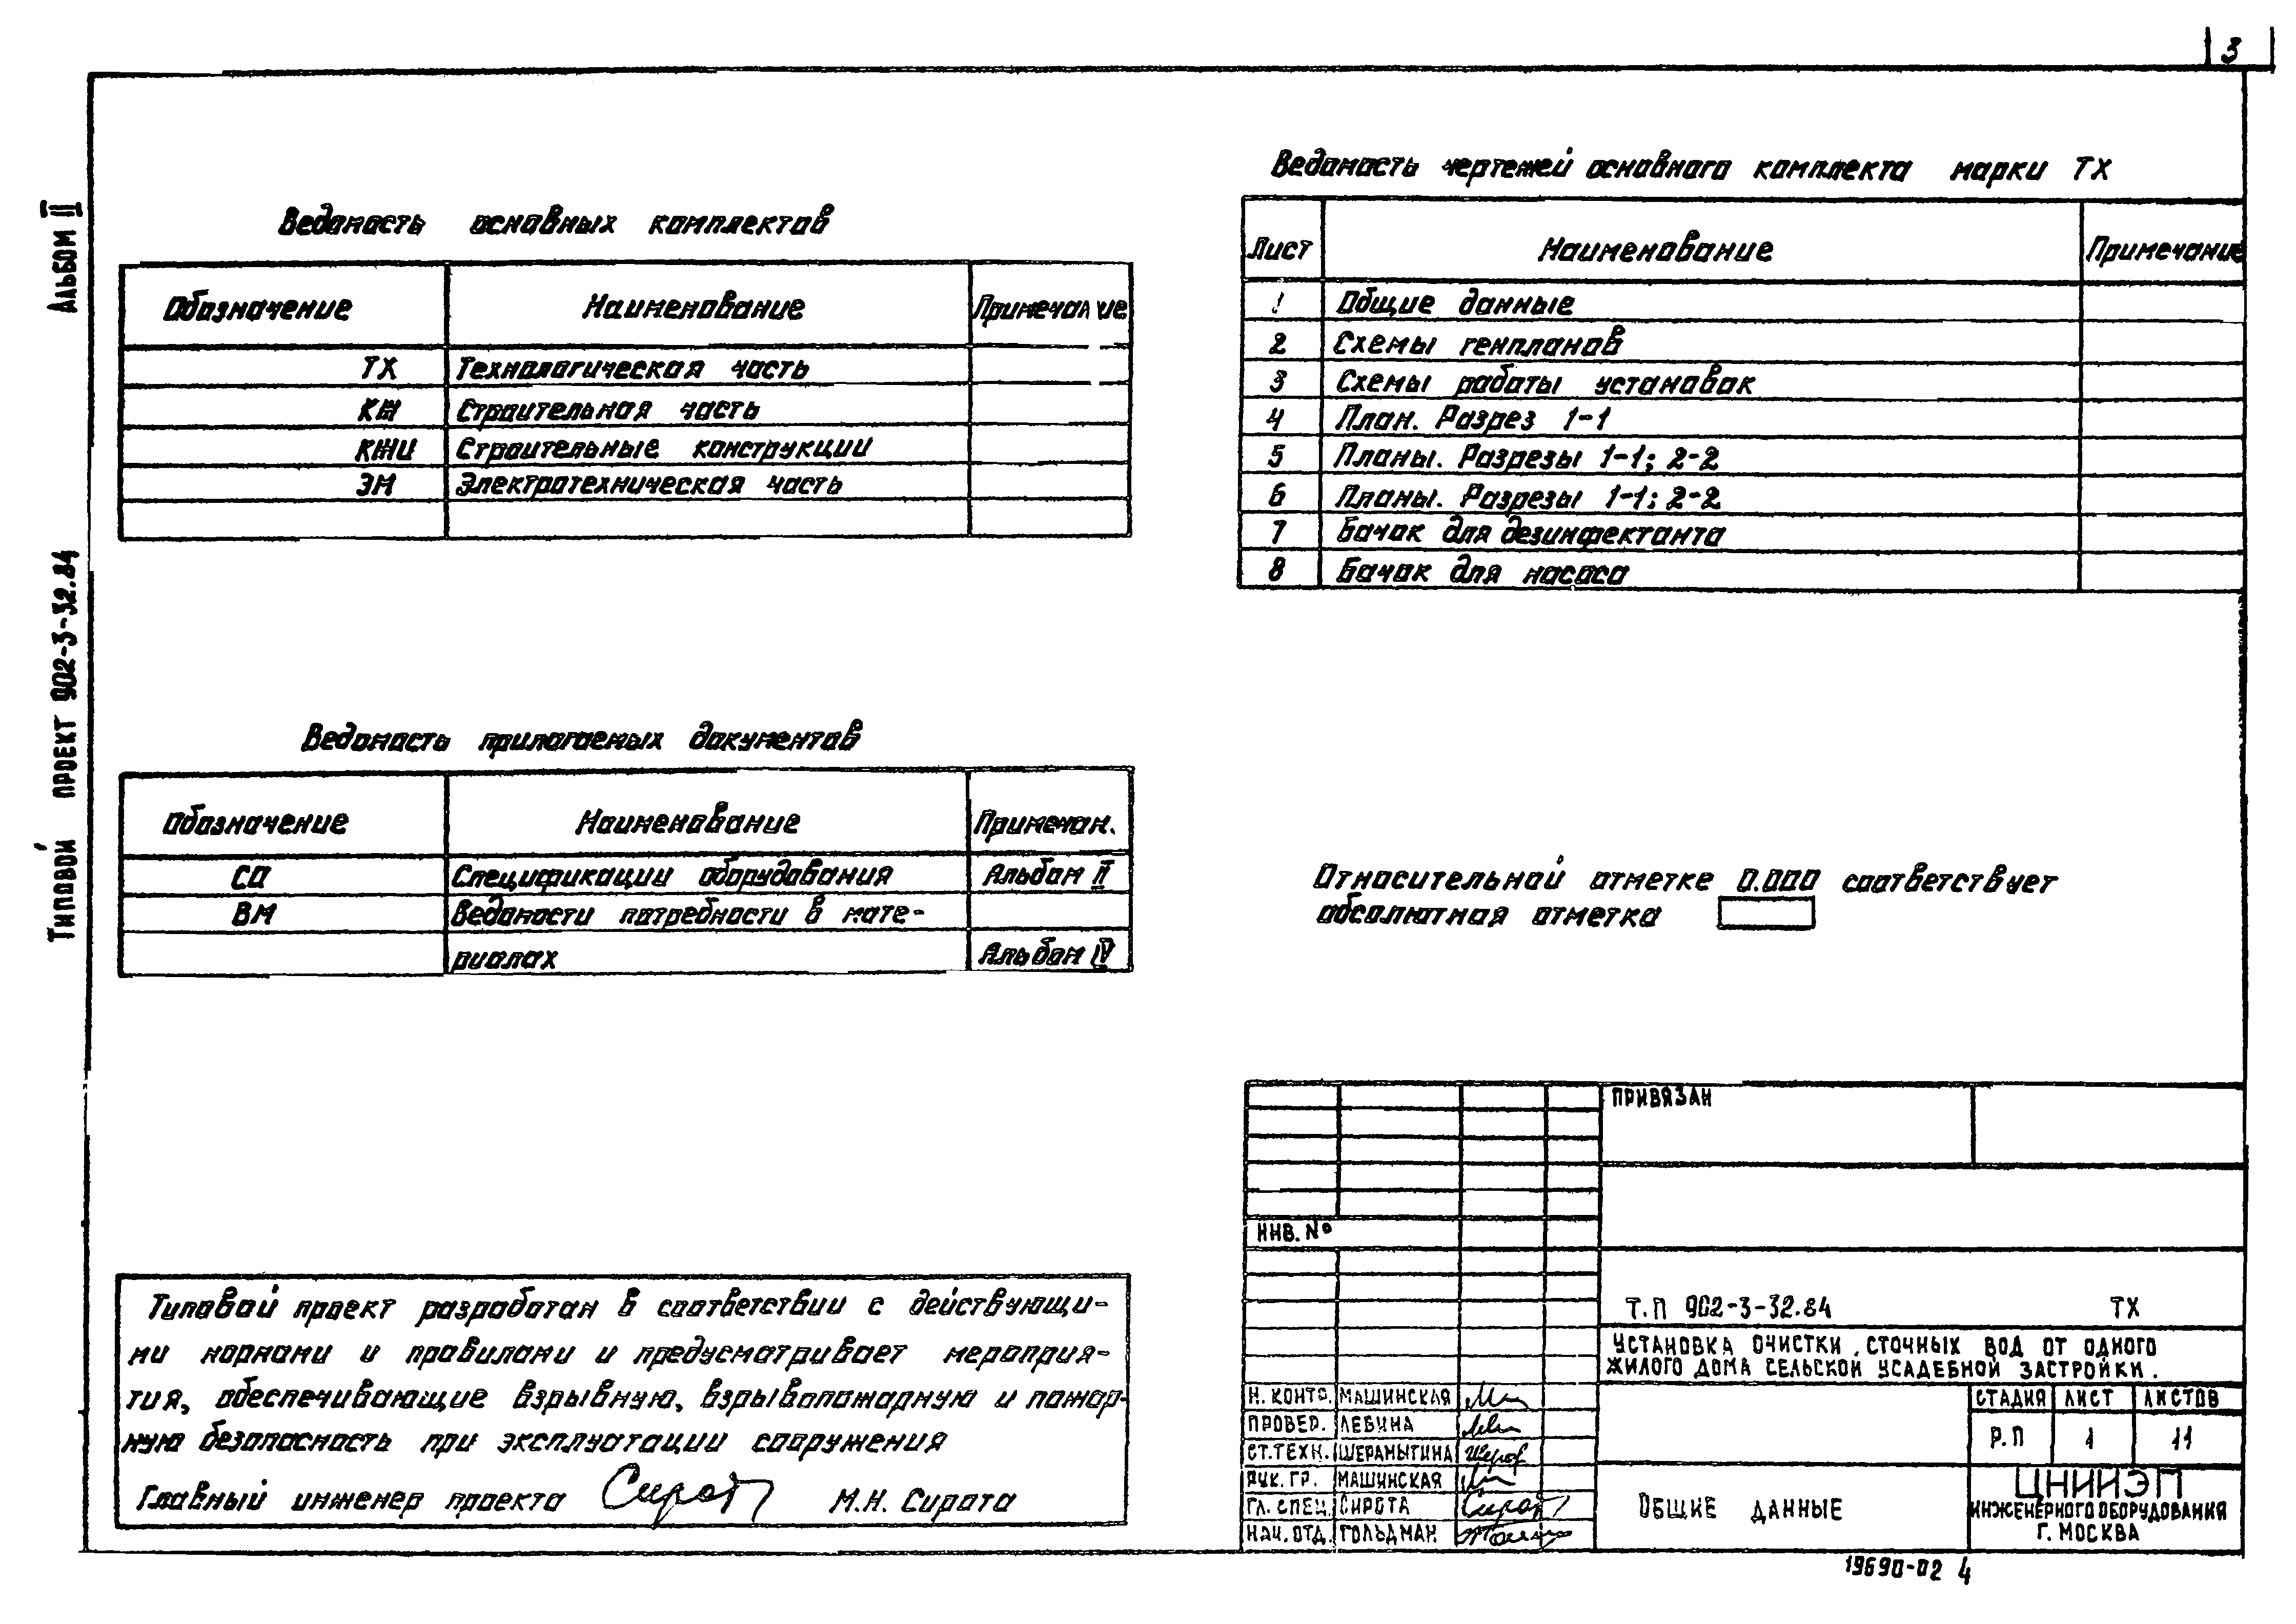 3
Альбом II
Типовой проект 902-3-32.84
Ведомость основных комплектов
Обозначение Наименование Примечание
ТХ Технологическая часть
КЖ Строительная часть
КЖИ Строительные конструкции
ЭМ Электротехническая часть
Ведомость прилагаемых документов
Обозначение Наименование Примечан.
СО Спецификации оборудования Альбом II
ВМ Ведомости потребности в мате-
риалах Альбом IV
Типовой проект разработан в соответствии с действующи-
ми нормами и правилами и предусматривает мероприя-
тия, обеспечивающие взрывную, взрывопожарную и пожар-
ную безопасность при эксплуатации сооружения
Главный инженер проекта Сирота М.Н. Сирота
Ведомость чертежей основного комплекта марки ТХ
Лист Наименование Примечание
1 Общие данные
2 Схемы генпланов
3 Схемы работы установок
4 План. Разрез 1-1
5 Планы. Разрезы 1-1; 2-2
6 Планы. Разрезы 1-1; 2-2
7 Бачок для дезинфектанта
8 Бачок для насоса
Относительной отметке 0.000 соответствует
абсолютная отметка
ПРИВЯЗАН
ИНВ. №
Т.П 902-3-32.84 ТХ
УСТАНОВКА ОЧИСТКИ СТОЧНЫХ ВОД ОТ ОДНОГО
ЖИЛОГО ДОМА СЕЛЬСКОЙ УСАДЕБНОЙ ЗАСТРОЙКИ.
Н. КОНТР. МАШИНСКАЯ
ПРОВЕР. ЛЕВИНА
СТ.ТЕХН. ШЕРАМЫГИНА
РУК. ГР. МАШИНСКАЯ
ГЛ. СПЕЦ. СИРОТА
НАЧ. ОТД. ГОЛЬДМАН
СТАДИЯ ЛИСТ ЛИСТОВ
Р.П 1 11
ОБЩИЕ ДАННЫЕ
ЦНИИЭП
ИНЖЕНЕРНОГО ОБОРУДОВАНИЯ
Г. МОСКВА
19690-02 4